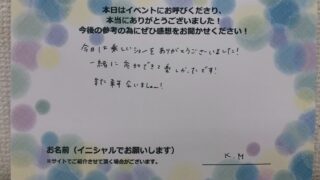 本日はイベントにお呼びくださり、
本当にありがとうございました!
今後の参考の為にぜひ感想をお聞かせください!
今日は楽しいショーをありがとうございました!
一緒に参加できて楽しかったです!
また来て下さいねー!
お名前(イニシャルでお願いします)
※サイトでご紹介させて頂く場合がございます。
K.M